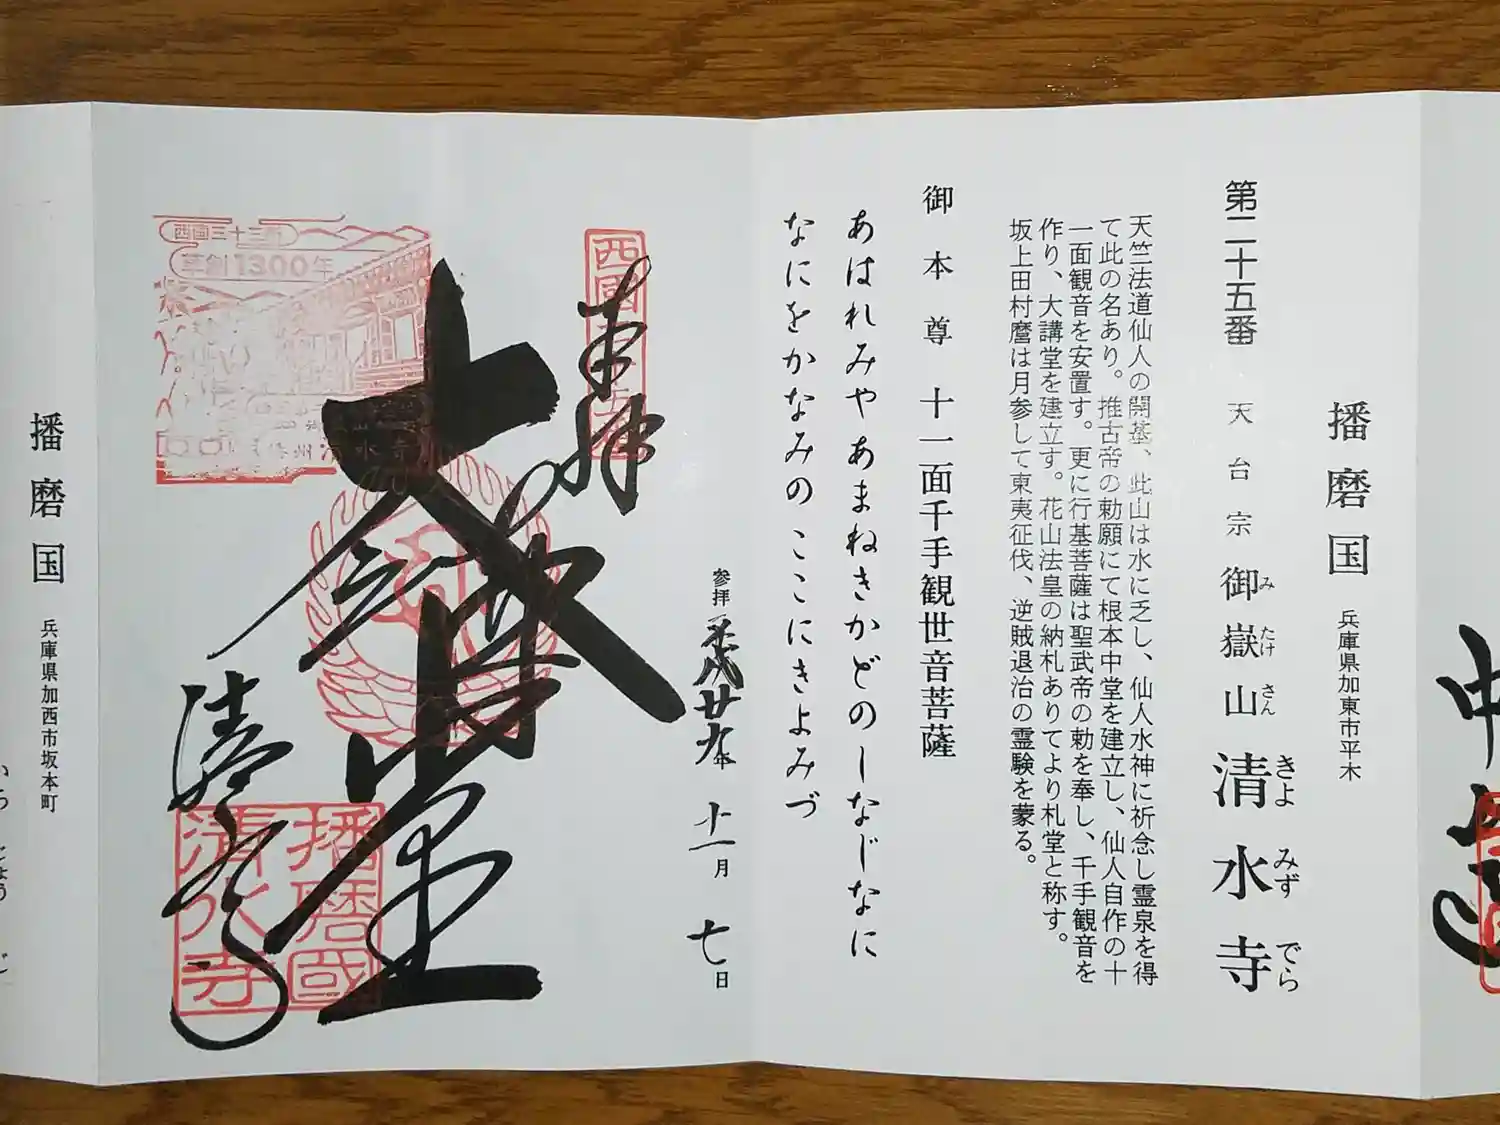 播磨国 兵庫県加東市平木
第二十五番 天台宗 御嶽山 清水寺
み たけ さん きよ みず でら
天竺法道仙人の開基、此山は水に乏し、仙人水神に祈念し霊泉を得
て此の名あり。推古帝の勅願にて根本中堂を建立し、仙人自作の十
一面観音を安置す。更に行基菩薩は聖武帝の勅を奉し、千手観音を
作り、大講堂を建立す。花山法皇の納札ありてより札堂と称す。
坂上田村麿は月参して東夷征伐、逆賊退治の霊験を蒙る。
御本尊 十一面千手観世音菩薩
あはれみやあまねきかどのしなじなに
なにをかなみのここにきよみづ
参拝 平成廿九年 十一月 七日
奉拝
大講堂
清水寺
西國三十三所
草創1300年
播磨國
清水寺
播磨国 兵庫県加西市坂本町